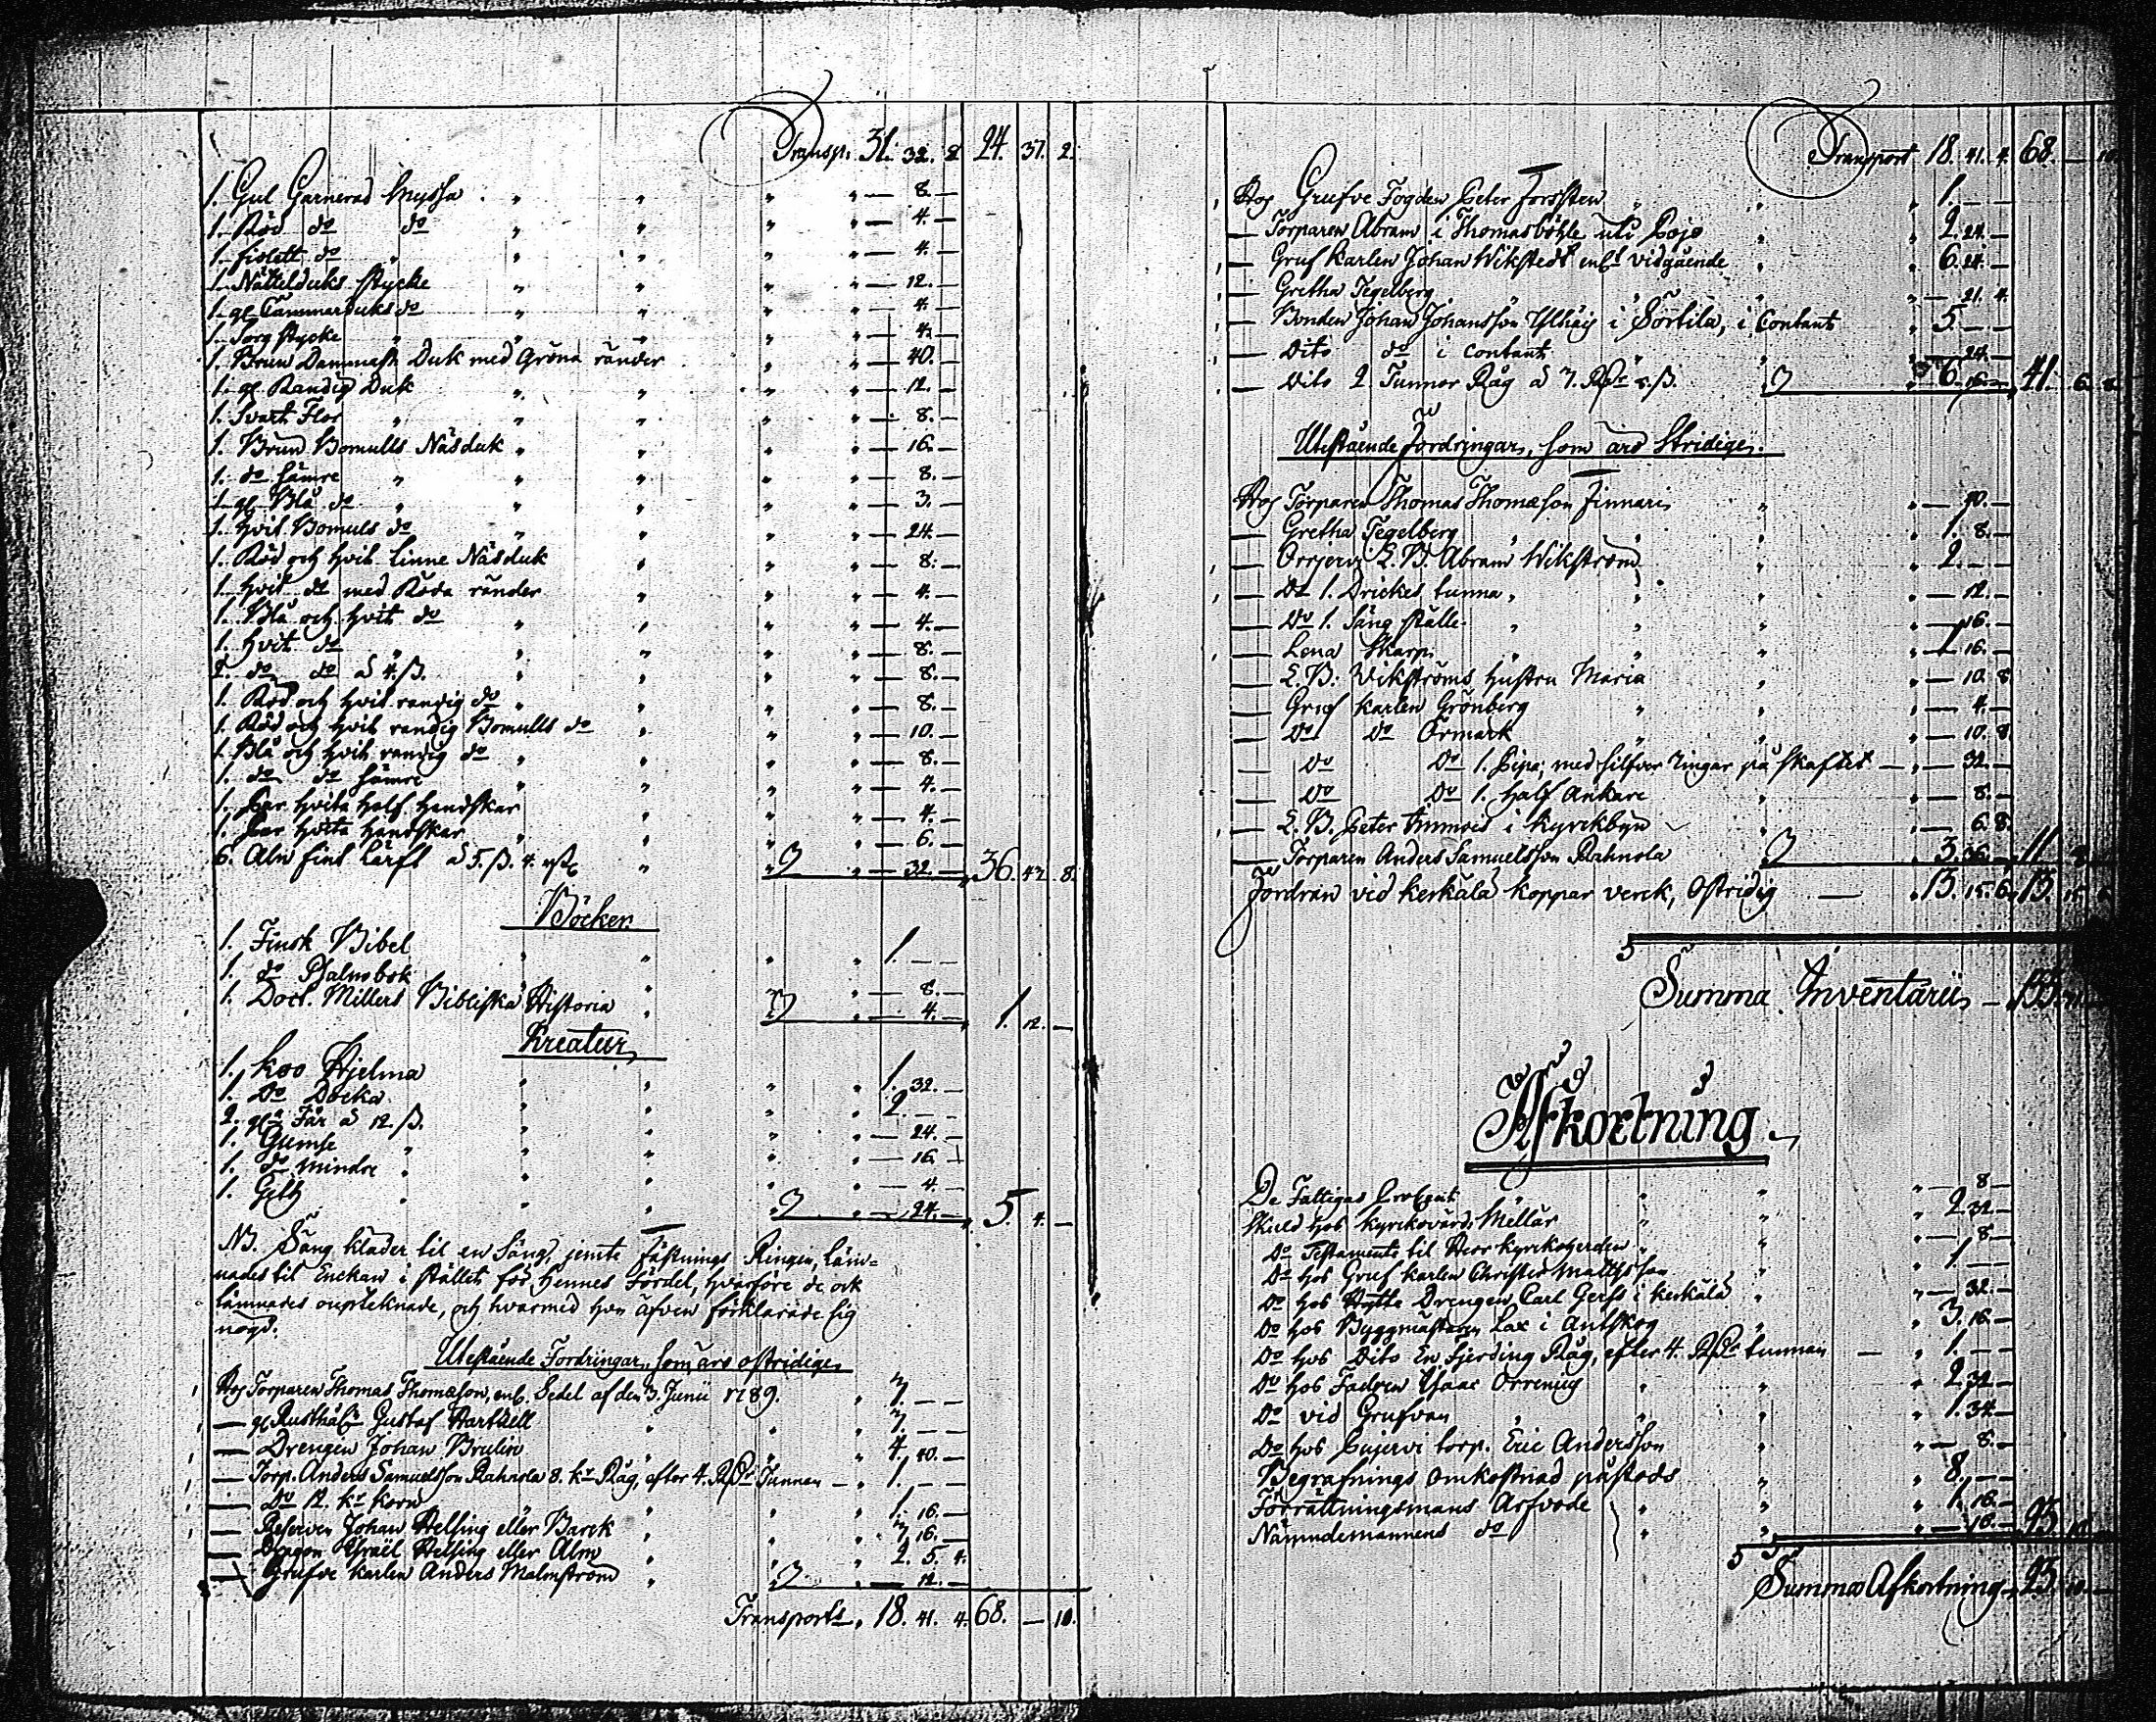 Transp. 31. 32. 8. 24. 37. 2.
1. Gul Garnerad Myssa 8.
1. Röd do do 4.
1. fiolett do 4.
1. Nättelduks stycke 12.
1. gl Cammarduks do 4.
1. Sorg stycke 4.
1. Brun Dammask Duk med Gröna ränder 40.
1. gl Randig Duk 12.
1. Svart Flor 8.
1. Brun Bomulls Näsduk 16.
1. do sämre 8.
1. gl Blå do 3.
1. Hvit Bomuls do 24.
1. Röd och hvit Linne Näsduk 8.
1. hvit do med Röda ränder 4.
1. Blå och hvit do 4.
1. hvit do 8.
2. do do à 4. ß. 8.
1. Röd och hvit randig do 8.
1. Röd och hvit randig Bomulls do 10.
1. Blå och hvit randig do 8.
1. do do sämre 4.
1. Par hvita half handskar 4.
1. Par hvita handskar 6.
6. Aln fint Lärft à 5. ß. 4. 32. 36. 47. 8.
Böcker
1. Finsk Bibel 1.
1. do Psalmbok 8.
1. Doct. Millers Bibliska Historia 4. 1. 12.
Kreatur
1. Koo Hjelma 1. 32.
1. Do Docka 2.
2. gla Får à 12. ß. 24.
1. Gumse 16.
1. do mindre 4.
1. Geth 24. 5. 4.
NB. Säng kläder til en Säng, jemte fästnings Ringen, läm=
nades til Enckan i stället för Hennes Fördel, hvarföre de ock
lämnades oupteknade, och hvarmed hon äfven förklarade sig
nögd.
Utestående Fordringar, som äro ostridige
Hos Torparen Thomas Thomæson, enl. Sedel af den 3. Junii 1789. 7.
gl Rusthål. Gustaf Hartvell 7.
Drengen Johan Brulin 4. 40.
Torp. Anders Samuelsson Rahnola 8. kr Råg, efter 4. Rdr Tunnan 1.
Do 12. kr korn 1. 16.
Reserven Johan Helsing eller Barck 7 16.
Dragon Israël Helsing eller Alm 2. 5. 4.
Grufve karlen Anders Malmström 12.
Transport 18. 41. 4. 68. — 10.
Transport 18. 41. 4. 68. — 10.
Hos Grufve Fogden Peter Forssten 1.
Torparen Abram i Thomasböhle uti Pojo 2. 24.
Gruf Karlen Johan Wikstedt enl. vidgående 6. 24.
Gretha Tegelberg 21. 4.
Bonden Johan Johansson Ylhäis i Sortila, i Contant 5.
Dito do i contant 24.
Dito 2 Tunnor Råg à 3. Rdr 8. ß. 6. 16. 41. 6. 8.
Utestående fordringar, som äro Stridige.
Hos Torparen Thomas Thomæson Finnari 40.
Gretha Tegelberg 1. 8.
Orrjervi E. B. Abram Wikström 2.
Do 1. Drickes tunna 12.
Do 1. Säng ställe 16.
Lena Skarp 1. 16.
E. B. Vikströms Hustru Maria 10. 8
Gruf karlen Grönberg 4.
Do Do Örmark 10. 8
Do Do 1. Pipa, med silfver ringar på skaftet 32.
Do Do 1. half Ankare 8.
E. B. Peter i Kyrckbyn 6. 8.
Torparen Anders Samuelsson Rahnola 3. 36. 11.
Fordran vid Kerkälä koppar verck, Ostridig 13. 15. 6. 13. 15. 6.
Summa Inventarii
Afkortning
De Fattigas 8
Skuld hos kyrckovärd. Mellär 2. 32.
Do Testamente til Herr kyrckoherden 8.
Do hos Gruf karlen Christer Mattsson 1.
Do hos Hytte Drengen Carl Gerss i Kerkälä 32.
Do hos Byggmästaren Lax i Antskog 3. 16.
Do hos Dito En fjerding Råg, efter 4. Rdr tunnan 1.
Do hos Fadren Isaac 2. 32.
Do vid Grufvan 1. 34.
Do hos torp. Eric Andersson 8.
Begrafnings omkostnad påstods 8.
Förrättningsmans Arfvode 1. 16.
Nämndemannens do 16.
Summa Afkortning